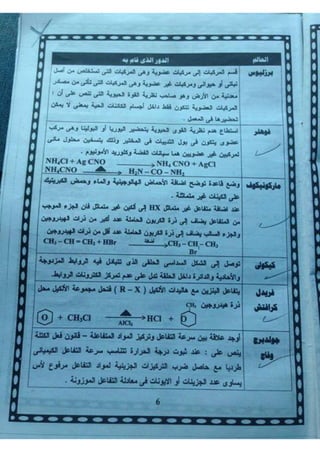 العالم
الدور الذى قام به
برزليوس
قسم المركبات إلى مركبات عضوية وهى المركبات التى تستخلص من أصل
نباتى أو حيوانى ومركبات غير عضوية وهى المركبات التى تأتى من مصادر
معدنية من الأرض وهو صاحب نظرية القوى الحيوية التى تنص على أن :
المركبات العضوية تتكون فقط داخل أجسام الكائنات الحية بمعنى لا يمكن
تحضيرها فى المعمل .
فوهلر
استطاع هدم نظرية القوى الحيوية بتحضير اليوريا أو البولينا وهى مركب
عضوى يتكون فى بول الثدييات فى المختبر وذلك بتسخين محلول مائى
لمركبين غير عضويين هما سيانات الفضة وكلوريد الأمونيوم .
NH4Cl + Ag CNO → NH4 CNO + AgCl
NH4CNO → H2N – CO – NH2
ماركونيكوف
وضع قاعدة توضح اضافة الأحماض الهالوجينية والماء وحمض الكبريتيك
على الكينات غير متماثلة .
عند اضافة متفاعل غير متماثل HX إلى ألكين غير متماثل فإن الجزء الموجب
من المتفاعل يضاف إلى ذرة الكربون الحاملة عدد أكبر من ذرات الهيدروجين
والجزء السالب يضاف إلى ذرة الكربون الحاملة عدد أقل من ذرات الهيدروجين
CH3 – CH = CH2 + HBr → CH3 – CH – CH3
Br
كيكولى
توصل إلى الشكل السداسى الحلقى الذى تتبادل فيه الروابط المزدوجة
والأحادية والدائرة داخل الحلقة تدل على عدم تمركز الكترونات الروابط.
فريدل
كرافتش
يتفاعل البنزين مع هاليدات الألكيل ( R – X ) فتحل مجموعة الألكيل محل
ذرة هيدروجين
CH3
+ CH3Cl → HCl +
AlCl3
جولدبرج
وفاج
أوجد علاقة بين سرعة التفاعل وتركيز المواد المتفاعلة – قانون فعل الكتلة
ينص على : عند ثبوت درجة الحرارة تتناسب سرعة التفاعل الكيميائى
طرديا مع حاصل ضرب التركيزات الجزيئية لمواد التفاعل مرفوع لأس
يساوى عدد الجزيئات أو الايونات فى معادلة التفاعل الموزونة .
6